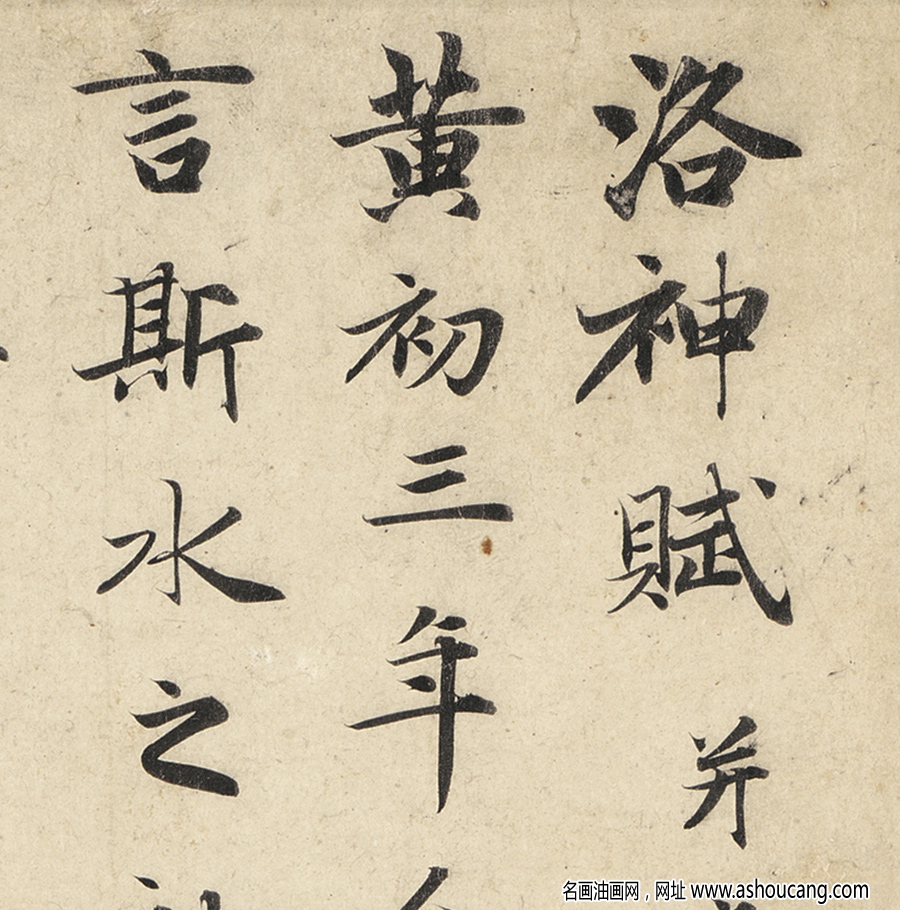 洛神賦并
黃初三年
言斯水之
名画油画网，网址 www.ashoucang.com